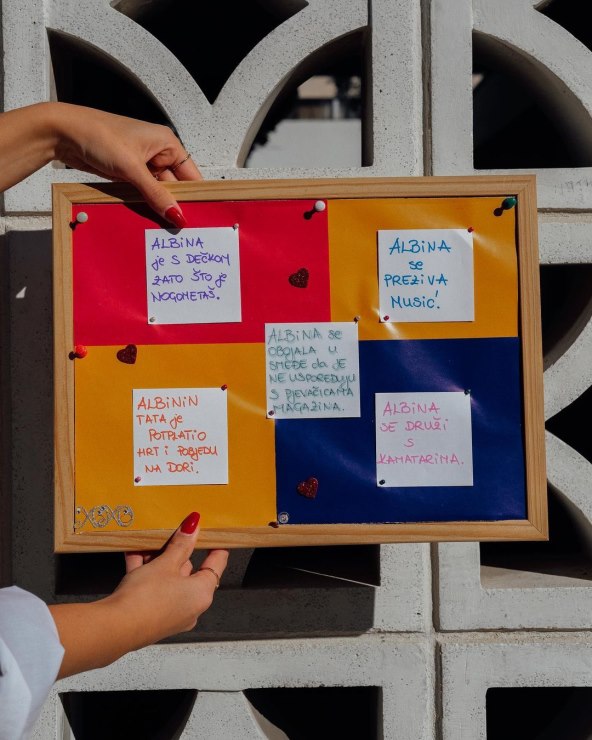 ALBINA
je S DEČKOM
ZATO ŠTO je
NOGOMETAŠ.
ALBINA
se
PREZIVA
MUSIĆ!
ALBINA se
OBOJALA U
SMEĐE da je
NE USPOREĐUJU
S PJEVAČICAMA
MAGAZINA.
ALBININ
TATA je
POTPLATIO
HRT i POBJEDU
NA DORI.
ALBINA
SE DRUŽI
S
KAMATARIMA.